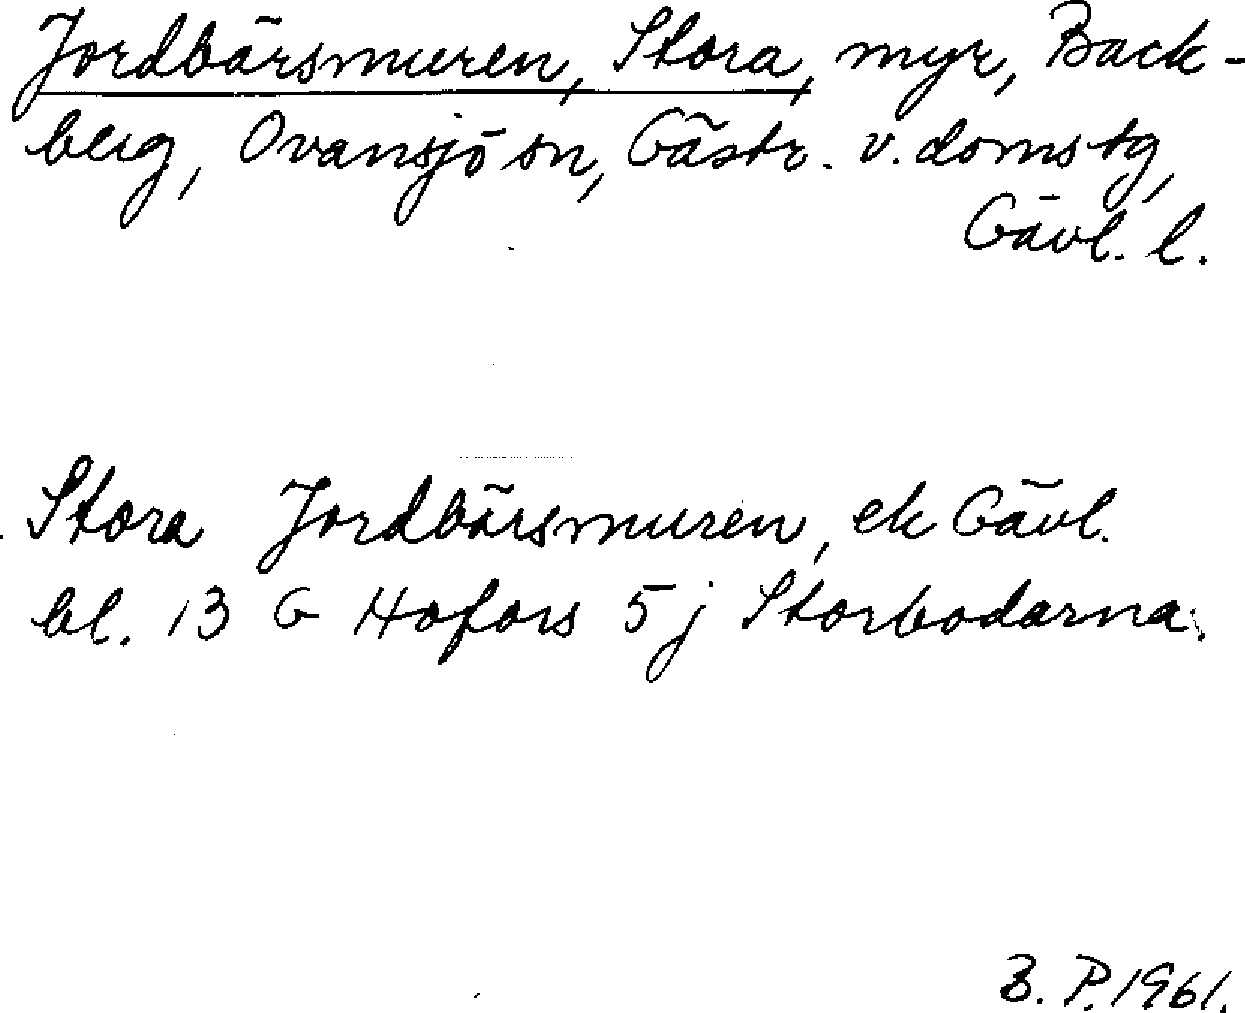 Jordbärsmuren, Stora, myr, Back-
berg, Ovansjö sn, Gästr. v. domstg,
Gävl. l.
Stora Jordbärsmuren, ek Gävl.
bl. 13 G Hofors 5 j Storbodarna.
B. P. 1961.